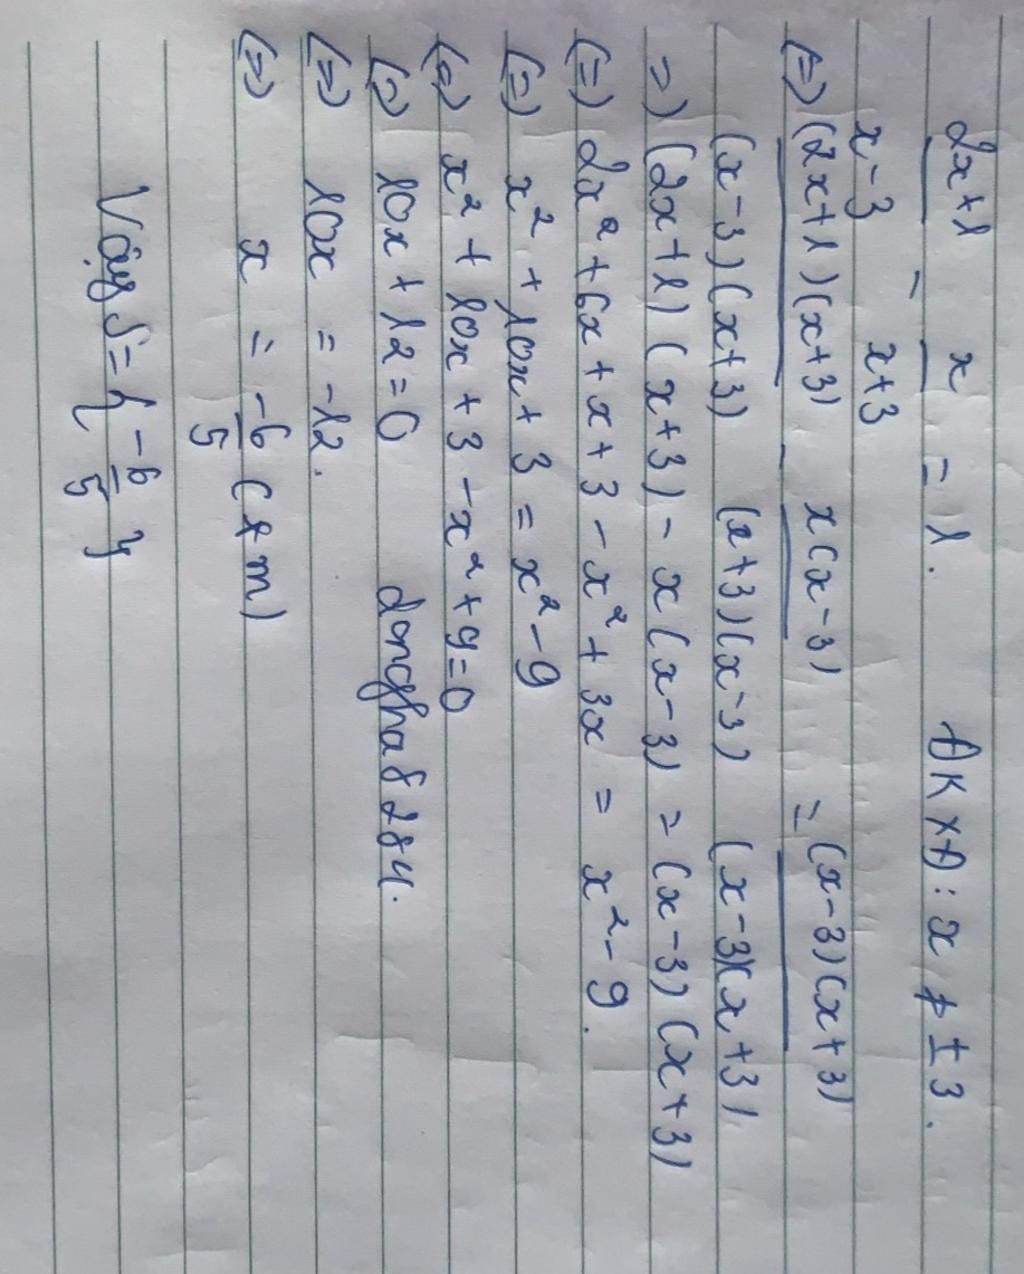 2x+1/x-3 - x/x+3 = 1. ĐKXĐ: x ≠ ±3.
(=) (2x+1)(x+3)/(x-3)(x+3) - x(x-3)/(x+3)(x-3) = (x-3)(x+3)/(x-3)(x+3)
=) (2x+1)(x+3) - x(x-3) = (x-3)(x+3)
(=) 2x²+6x+x+3-x²+3x = x²-9.
(=) x²+10x+3 = x²-9
(=) x²+10x+3-x²+9=0
(=) 10x+12=0 dongha8284.
(=) 10x = -12.
(=) x = -6/5 (tm)
Vậy S={-6/5}